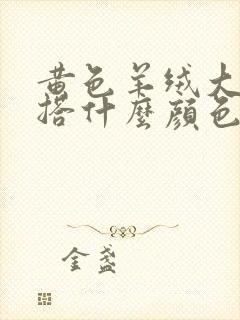 黄色羊绒大
搭什麼顏色
金盏